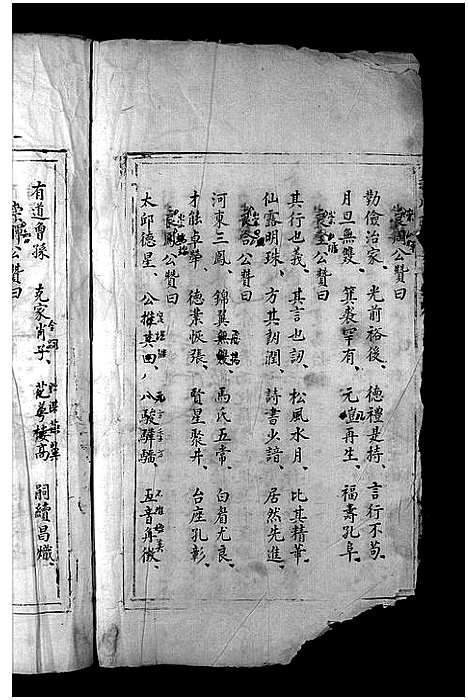 公贊曰
勤儉治家、光前裕後、德禮是持、言行不苟、
月旦無雙、箕裘罕有、元愷再生、福壽孔阜、
公贊曰
其行也義、其言也訒、松風水月、比其精華、
仙露明珠、方其朗潤、詩書少諳、居然先進、
公贊曰
河東三鳳、錦翼無雙、馬氏五常、白眉尤良、
才能卓犖、德業恢張、賢星聚井、台座孔彰、
公贊曰
太邱德星、公推、八駿驊騮、五音
公贊曰
有道曾孫、克家肖子、萼樓高、嗣續昌熾、